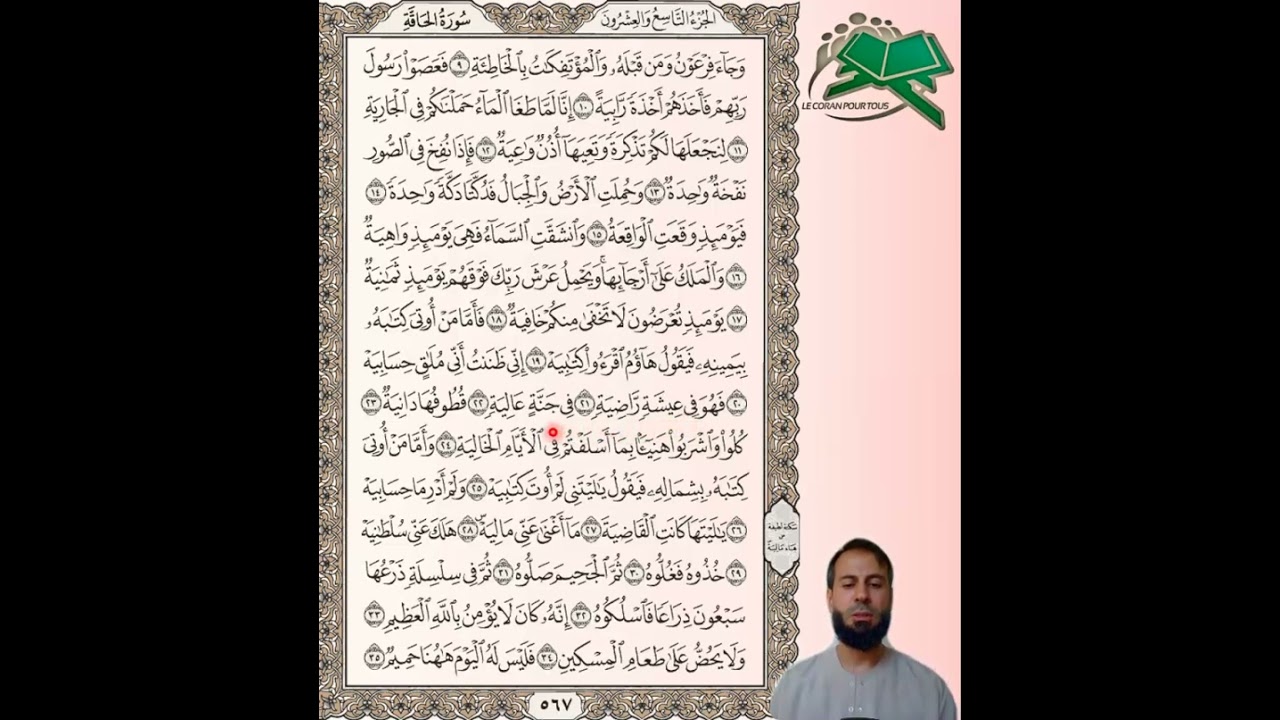 سُورَةُ الحَاقَّةِ
الجُزْءُ التَّاسِعُ وَالعِشْرُونَ
LE CORAN POUR TOUS
وَجَآءَ فِرْعَوْنُ وَمَن قَبْلَهُۥ وَٱلْمُؤْتَفِكَٰتُ بِٱلْخَاطِئَةِ ٩ فَعَصَوْا۟ رَسُولَ
رَبِّهِمْ فَأَخَذَهُمْ أَخْذَةً رَّابِيَةً ١٠ إِنَّا لَمَّا طَغَا ٱلْمَآءُ حَمَلْنَٰكُمْ فِى ٱلْجَارِيَةِ
١١ لِنَجْعَلَهَا لَكُمْ تَذْكِرَةً وَتَعِيَهَآ أُذُنٌ وَٰعِيَةٌ ١٢ فَإِذَا نُفِخَ فِى ٱلصُّورِ
نَفْخَةٌ وَٰحِدَةٌ ١٣ وَحُمِلَتِ ٱلْأَرْضُ وَٱلْجِبَالُ فَدُكَّتَا دَكَّةً وَٰحِدَةً ١٤
فَيَوْمَئِذٍ وَقَعَتِ ٱلْوَاقِعَةُ ١٥ وَٱنشَقَّتِ ٱلسَّمَآءُ فَهِىَ يَوْمَئِذٍ وَاهِيَةٌ
١٦ وَٱلْمَلَكُ عَلَىٰٓ أَرْجَآئِهَا ۚ وَيَحْمِلُ عَرْشَ رَبِّكَ فَوْقَهُمْ يَوْمَئِذٍ ثَمَٰنِيَةٌ
١٧ يَوْمَئِذٍ تُعْرَضُونَ لَا تَخْفَىٰ مِنكُمْ خَافِيَةٌ ١٨ فَأَمَّا مَنْ أُوتِىَ كِتَٰبَهُۥ
بِيَمِينِهِۦ فَيَقُولُ هَآؤُمُ ٱقْرَءُوا۟ كِتَٰبِيَهْ ١٩ إِنِّى ظَنَنتُ أَنِّى مُلَٰقٍ حِسَابِيَهْ
٢٠ فَهُوَ فِى عِيشَةٍ رَّاضِيَةٍ ٢١ فِى جَنَّةٍ عَالِيَةٍ ٢٢ قُطُوفُهَا دَانِيَةٌ ٢٣
كُلُوا۟ وَٱشْرَبُوا۟ هَنِيٓـًٔۢا بِمَآ أَسْلَفْتُمْ فِى ٱلْأَيَّامِ ٱلْخَالِيَةِ ٢٤ وَأَمَّا مَنْ أُوتِىَ
كِتَٰبَهُۥ بِشِمَالِهِۦ فَيَقُولُ يَٰلَيْتَنِى لَمْ أُوتَ كِتَٰبِيَهْ ٢٥ وَلَمْ أَدْرِ مَا حِسَابِيَهْ
٢٦ يَٰلَيْتَهَا كَانَتِ ٱلْقَاضِيَةَ ٢٧ مَآ أَغْنَىٰ عَنِّى مَالِيَهْ ۜ ٢٨ هَلَكَ عَنِّى سُلْطَٰنِيَهْ
٢٩ خُذُوهُ فَغُلُّوهُ ٣٠ ثُمَّ ٱلْجَحِيمَ صَلُّوهُ ٣١ ثُمَّ فِى سِلْسِلَةٍ ذَرْعُهَا
سَبْعُونَ ذِرَاعًا فَٱسْلُكُوهُ ٣٢ إِنَّهُۥ كَانَ لَا يُؤْمِنُ بِٱللَّهِ ٱلْعَظِيمِ ٣٣
وَلَا يَحُضُّ عَلَىٰ طَعَامِ ٱلْمِسْكِينِ ٣٤ فَلَيْسَ لَهُ ٱلْيَوْمَ هَٰهُنَا حَمِيمٌ ٣٥
سكتة لطيفة
هاء مَالِيَهْ
٥٦٧